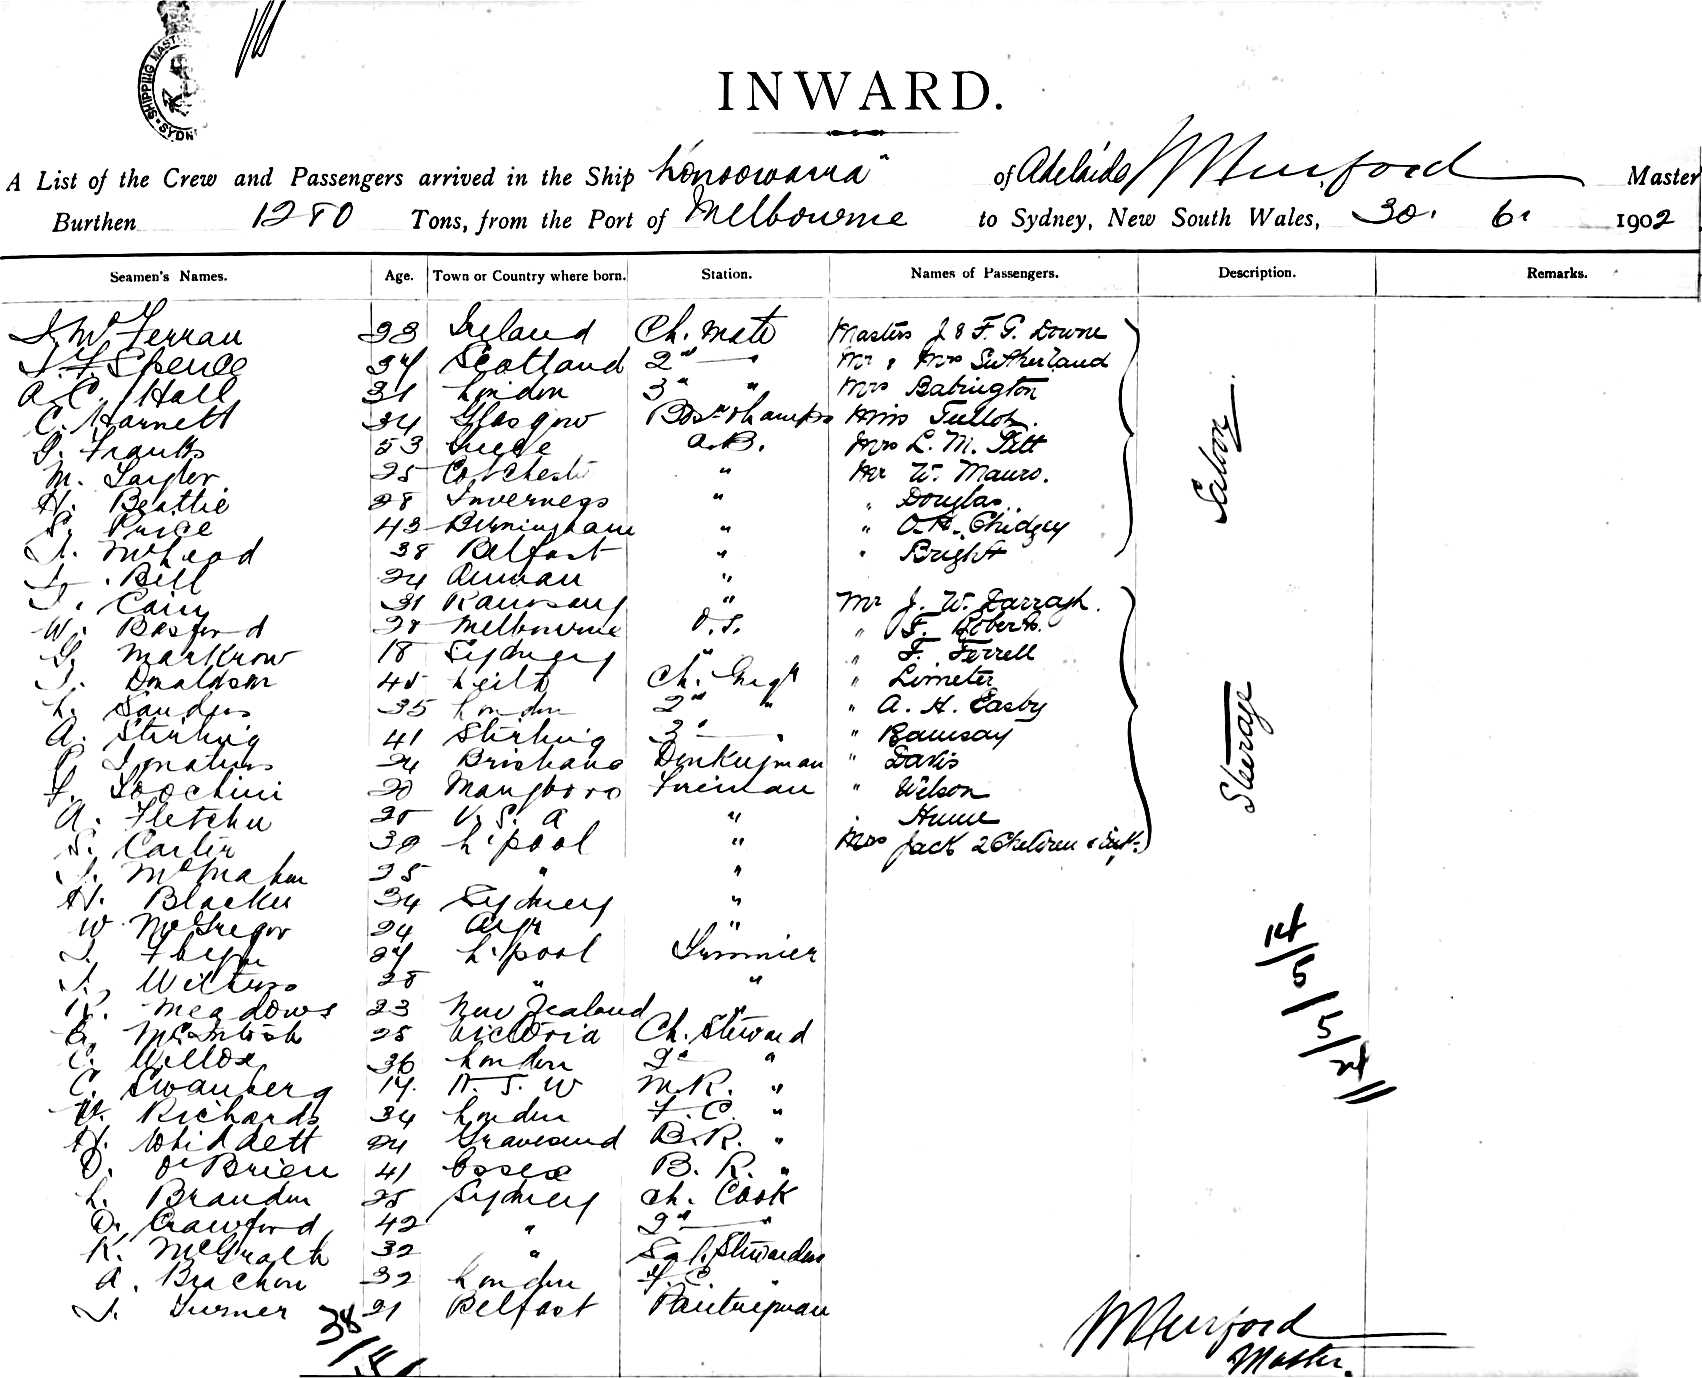 SHIPPING MAST
SYDN
INWARD.
A List of the Crew and Passengers arrived in the Ship "Konoowarra" of Adelaide Murford Master
Burthen 1280 Tons, from the Port of Melbourne to Sydney, New South Wales, 30. 6. 1902
Seamen's Names. Age. Town or Country where born. Station. Names of Passengers. Description. Remarks.
J. McFerran 33 Ireland Ch. Mate Masters J & F. G. Downe
J. F. Spence 34 Scotland 2nd " Mr & Mrs Sutherland
A. C. Hall 31 London 3" " Mrs Babington
C. Harnett 34 Glasgow Bosn & Lamps Miss Tulloh.
J. Franks 53 A.B. Mrs L. M. Pitt
M. Taylor 25 Colchester " Mr W. Mauro.
H. Beattie 28 Inverness " " Douglas
S. Price 43 Birmingham " " O. H. Chidgey
J. McLeod 38 Belfast " " Bright
Saloon
J. Bill 24 Annan "
J. Cain 31 Ramsey " Mr J. W. Darragh.
W. Basford 28 Melbourne O.S. " F. Roberts.
G. Markrow 18 Sydney " " F. Ferrell
J. Donaldson 45 Leith Ch. Engr " Limeter
L. Sanders 35 London 2nd " " A. H. Easby
A. Stirling 41 Stirling 3" " " Ramsay
P. Ignatius 24 Brisbane Donkeyman " Davis
Steerage
F. 20 Fireman " Wilson
A. Fletcher 25 U. S. A " " Hume
S. Carter 39 L'pool " Mrs Jack 2 Children & Inft.
J. McMahon 25 " "
H. Blacker 34 Sydney "
W. McGregor 24 Ayr "
J. 27 L'pool Trimmer
J. Wilkins 28 " "
R. Meadows 23 New Zealand "
G. McIntosh 25 Victoria Ch. Steward
C. Willox 36 London 2nd "
C. Swanberg 17. N. S. W M.R. "
H. Richards 34 London F. C. "
H. Whiddett 24 Gravesend B. R. "
D. O'Brien 41 Essex B. R. "
L. Brandon 25 Sydney Ch. Cook
D. Crawford 42 " 2nd "
K. McGrath 32 " Sal. Stewardess
A. Brachon 32 London F. C. "
J. Turner 21 Belfast Pantryman
14/5/5/24
38
Murford
Master.